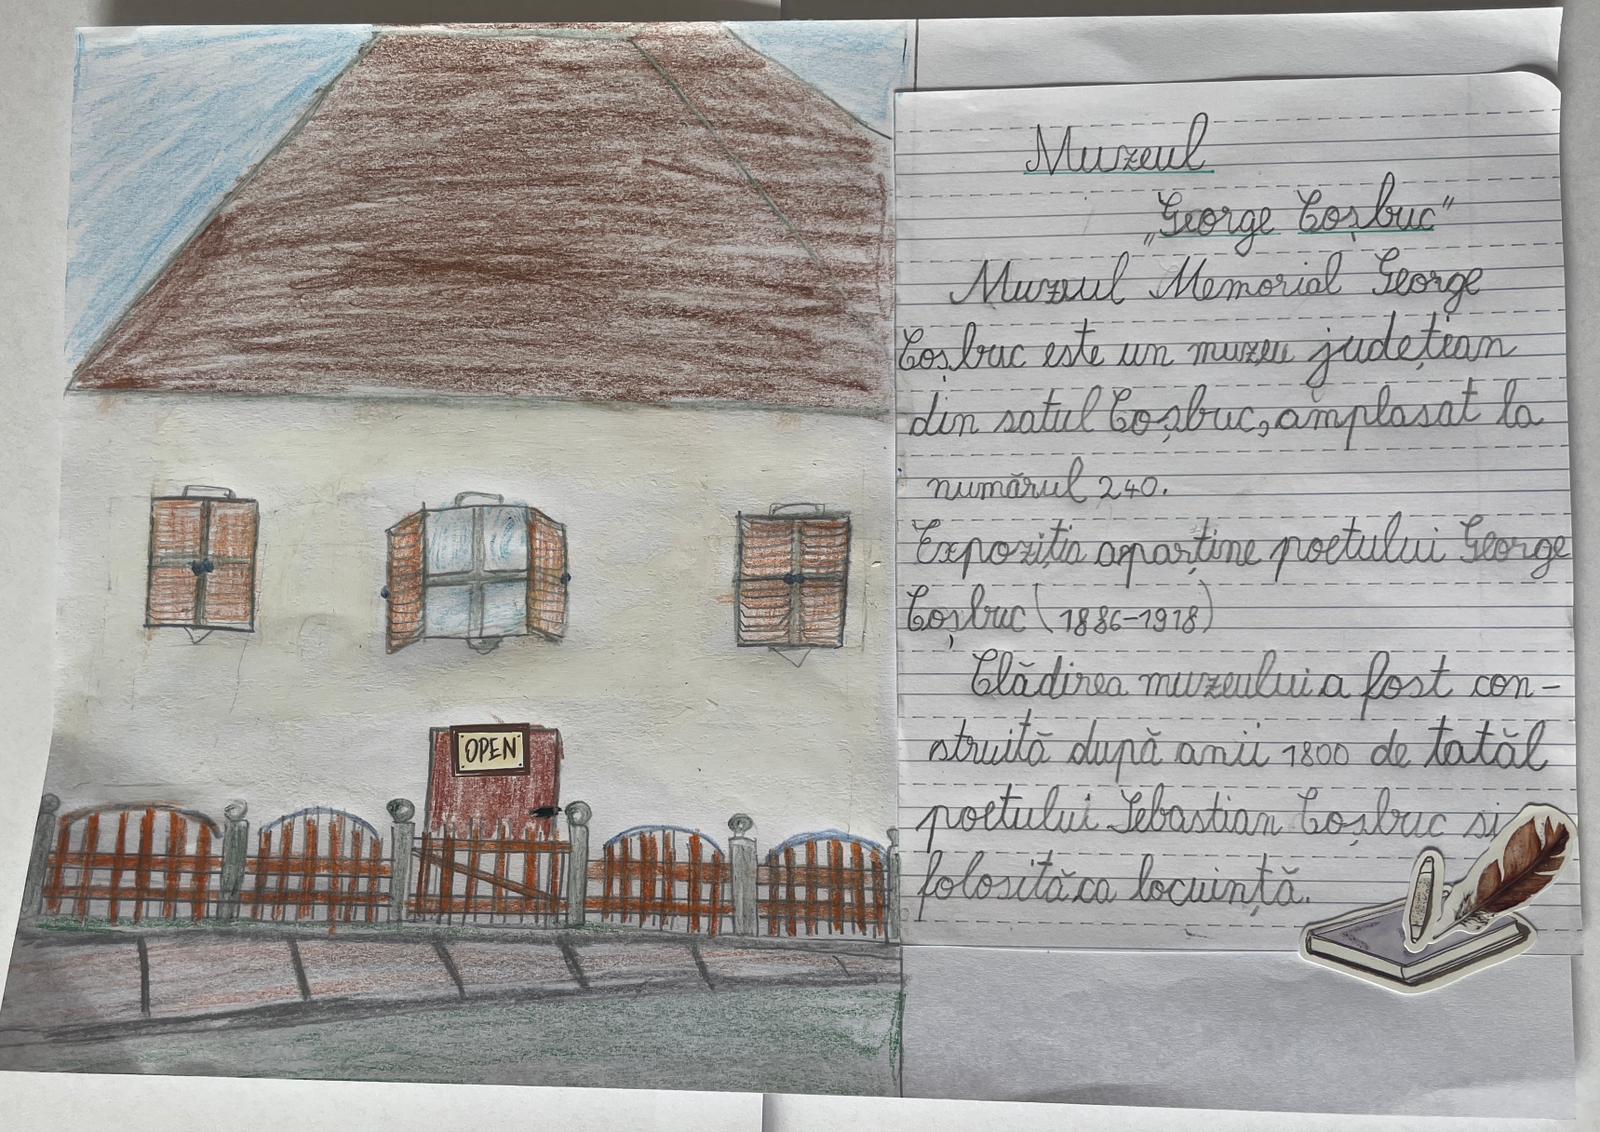 OPEN
Muzeul
„George Coșbuc"
Muzeul Memorial George
Coșbuc este un muzeu județean
din satul Coșbuc, amplasat la
numărul 240.
Expoziția aparține poetului George
Coșbuc (1886-1918)
Clădirea muzeului a fost con-
struită după anii 1800 de tatăl
poetului Sebastian Coșbuc si
folosită ca locuință.